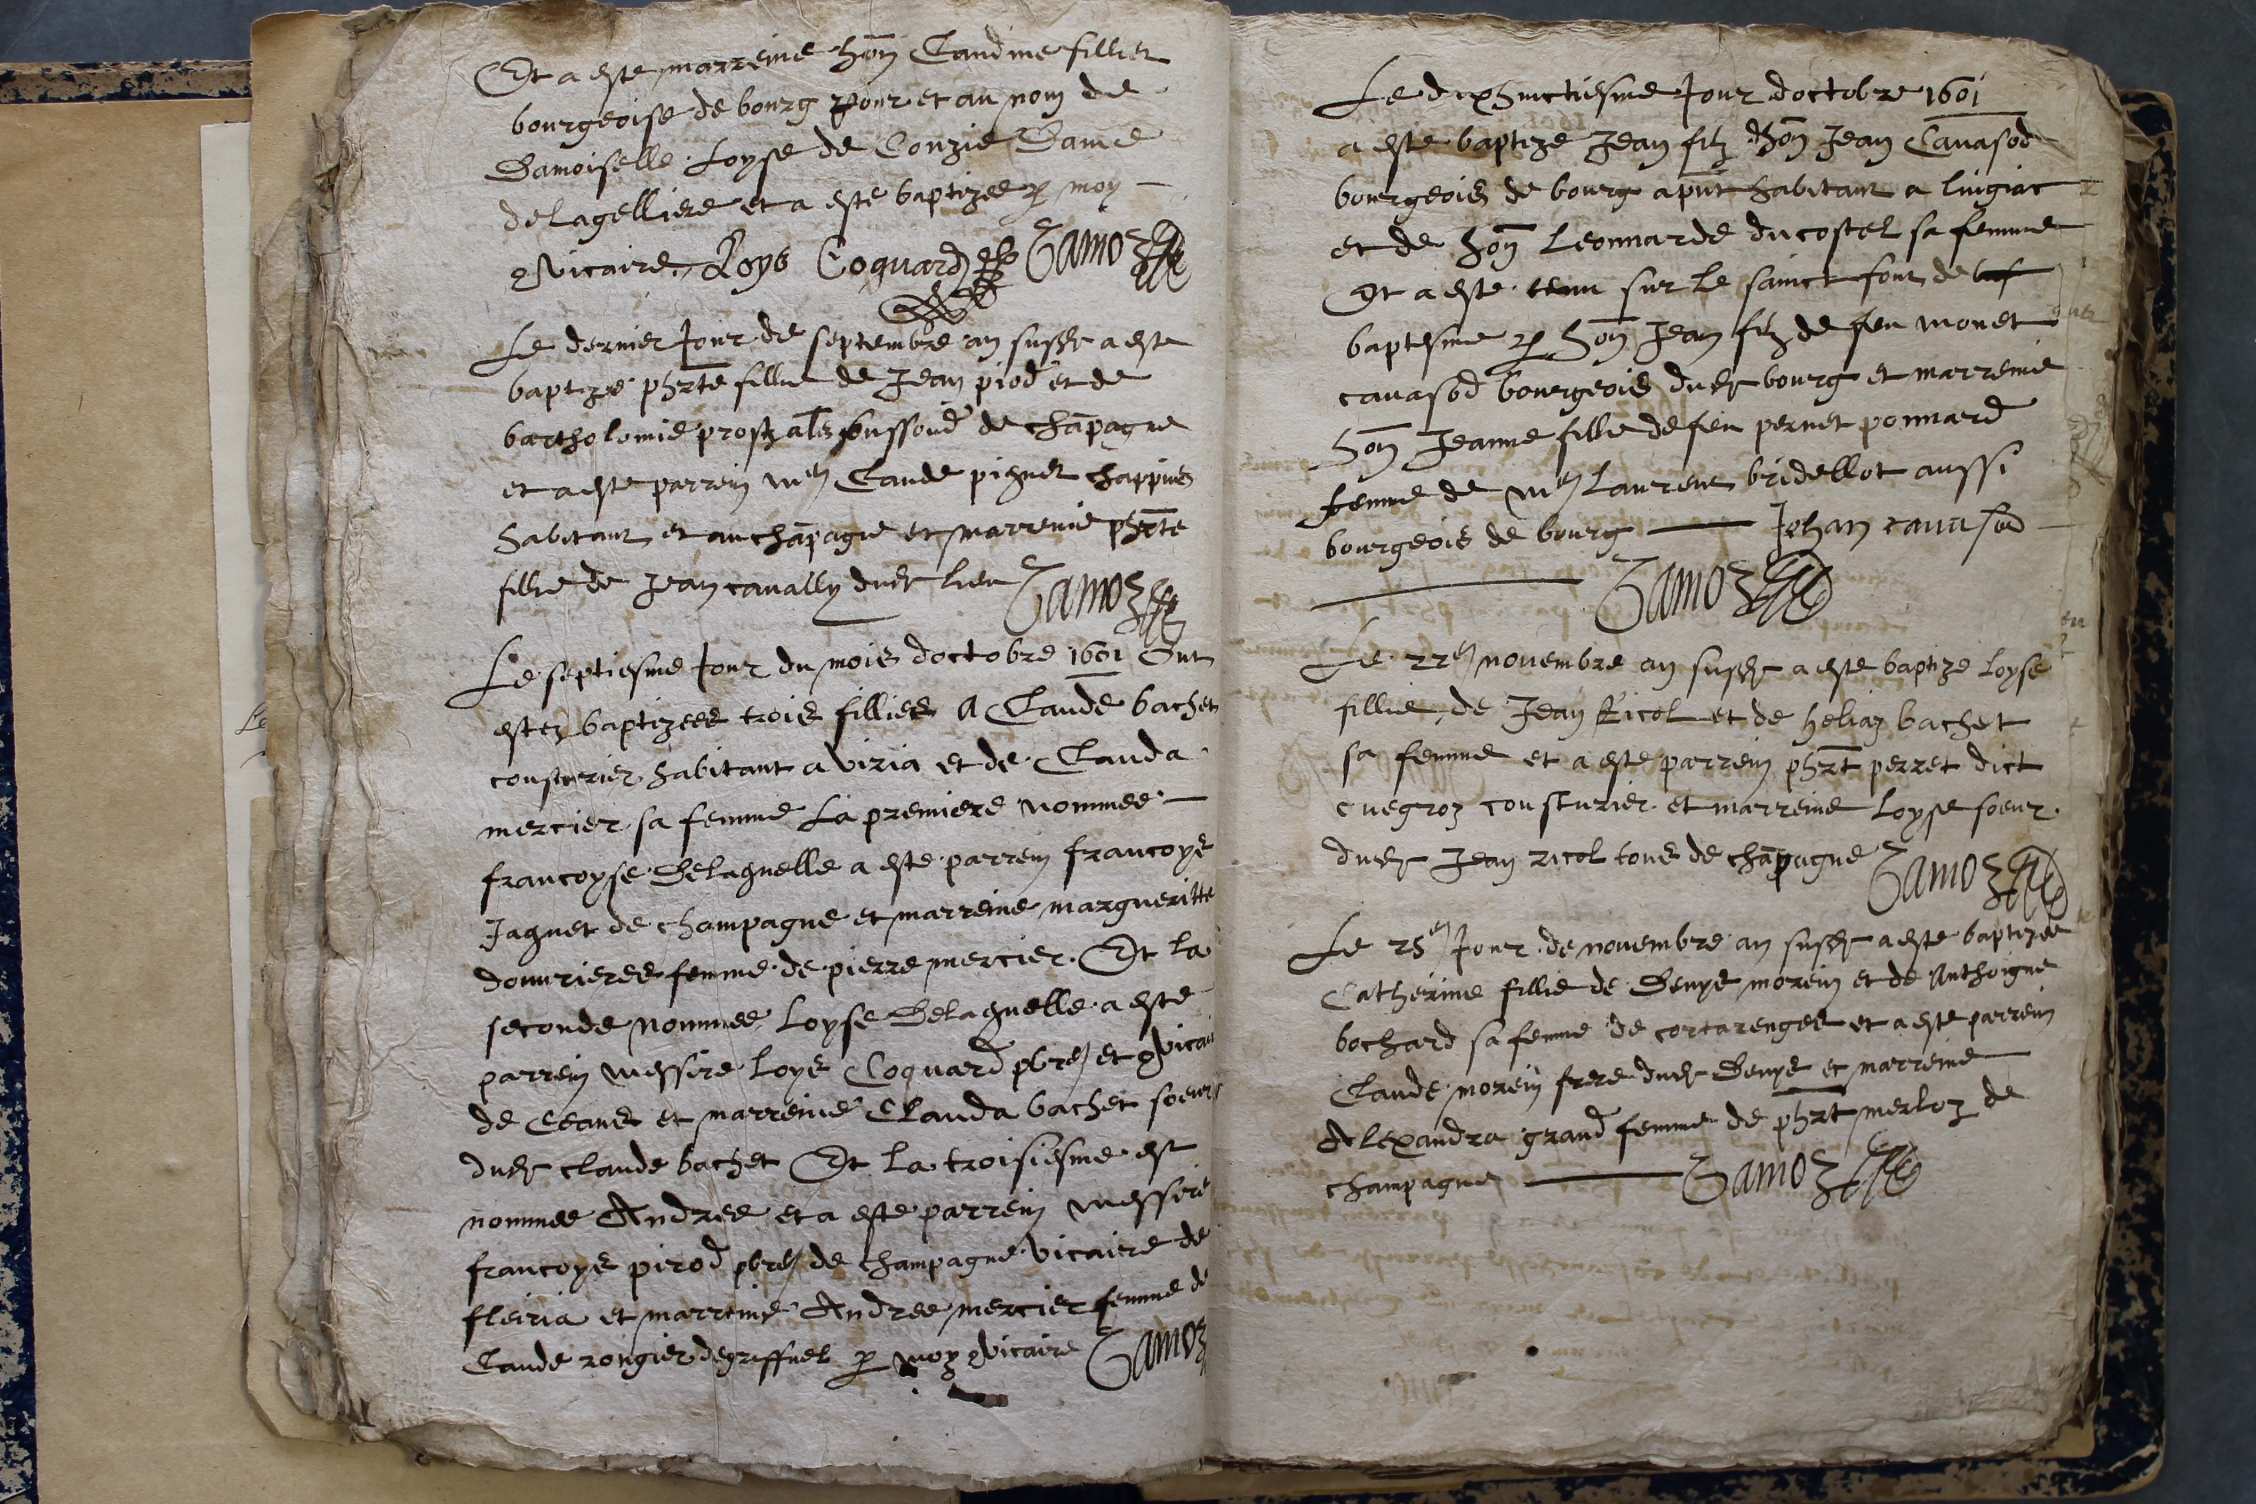 Et a este marreine hon Claudine filliet
bourgeoise de bourg pour et au nom de
Damoiselle Loyse de Conzie Dame
de lagelliere et a este baptizee p moy
vicaire Loys Coquard Gamoz
Le dernier Jour de septembre an susd a este
baptize phrte fillie de Jean piod et de
bartholomie prost als soussond de chapagne
et a este parrein me Claude pignet chappuis
habitant et au chapagne et marreine phrte
fillie de Jean cavally dud lieu Gamoz
Le septiesme Jour du mois doctobre 1601 Ont
estez baptizees trois fillies A Claude bachet
cousturier habitant a viria et de Clauda
mercier sa femme La premiere nommee
francoyse De laquelle a este parrein francoys
Jaquet de champagne et marreine margueritte
donvrieres femme de pierre mercier Et la
seconde nommee Loyse De laquelle a este
parrein messire Loys Coquard pbre et vicai
de Ceans et marreine Clauda bachet soeur
dud claude bachet Et la troisiesme est
nommee Andree et a este parrein messire
francoys pirod pbre de champagne vicaire de
fleiria et marreine Andree mercier femme de
Claude rongier de griffuel p moy vicaire Gamoz
Le dixhuictiesme Jour doctobre 1601
a este baptize Jean filz hon Jean Cavasod
bourgeois de bourg a pnt habitant a lingiat
et de hon Leonnarde du costel sa femme
Et a este tenu sur le sainct font de
baptesme p hon Jean filz de feu monet
cavasod bourgeois dud bourg et marreine
hon Jeanne fillie de feu pernet ponnard
femme de me Laurent bridellot aussi
bourgeois de bourg Johan cavasod
Gamoz
Le 22e novembre an susd a este baptize Loyse
fillie de Jean Ricol et de heliaz bachet
sa femme et a este parrein phrt perret dict
cuegroz cousturier et marreine Loyse soeur
dud Jean ricol tous de chapagne Gamoz
Le 25e Jour de novembre an susd a este baptizee
Catherine fillie de Denys morein et de Anthoigne
bochard sa femme de cortarenges et a este parrein
Claude morein frere dud Denys et marreine
Alexandra grand femme de phrt merloz de
champagne Gamoz